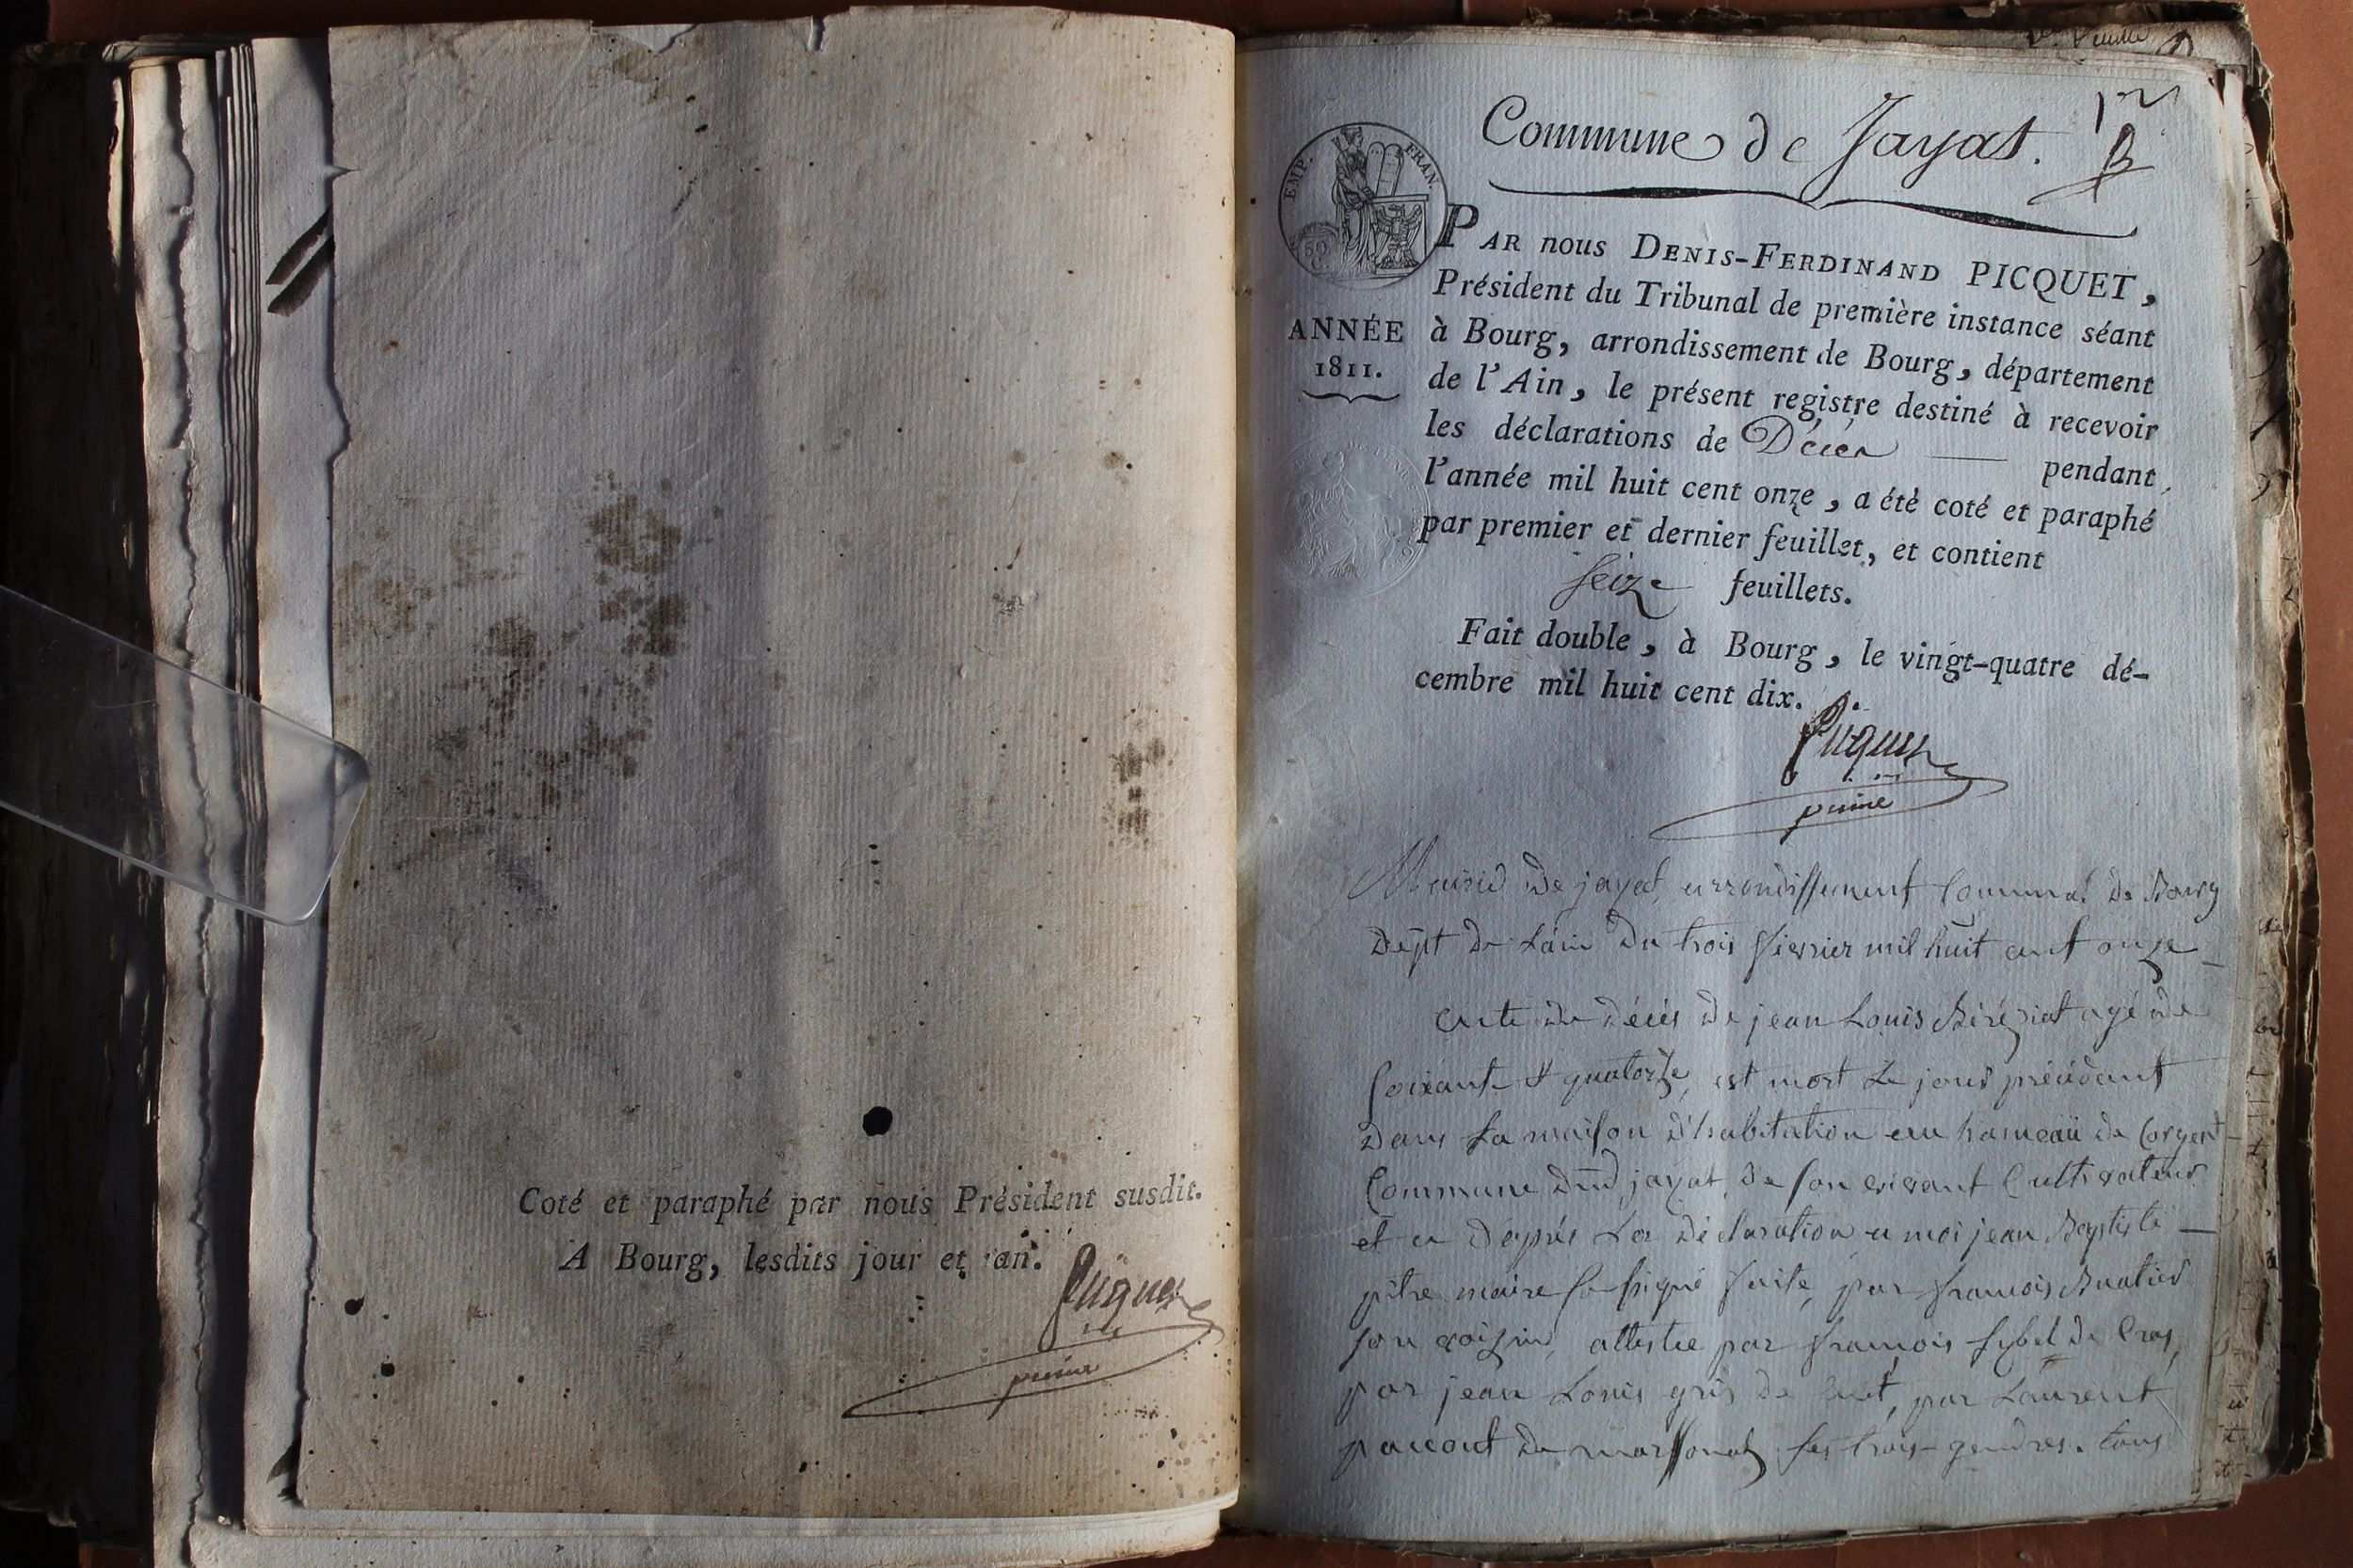 Coté et paraphé par nous Président susdit.
A Bourg, lesdits jour et an.
Picquet
Commune de Jayat.
EMP. FRAN.
50 C.
PAR nous DENIS-FERDINAND PICQUET,
Président du Tribunal de première instance séant
ANNÉE
1811.
à Bourg, arrondissement de Bourg, département
de l'Ain, le présent registre destiné à recevoir
les déclarations de Décès pendant
l'année mil huit cent onze, a été coté et paraphé
par premier et dernier feuillet, et contient
seize feuillets.
Fait double, à Bourg, le vingt-quatre dé-
cembre mil huit cent dix.
Picquet
Mairie de jayat, arrondissement Communal de Bourg
dept de Lain du trois fievrier mil huit cent onze
acte de décés de jean Louis Béréziat agé de
soixante & quatorze, est mort Le jour précédant
dans sa maison d'habitation au hameaü de Corgent
Commune dud jayat, de son vivant Cultivateur
et ce d'aprés La déclaration a moi jean Baptiste
pitre maire sousigné faite, par françois Buatier
son voisin, attestée par françois de Cras,
par jean Louis gris de par Laurent
de marssonas ses trois gendres. tous